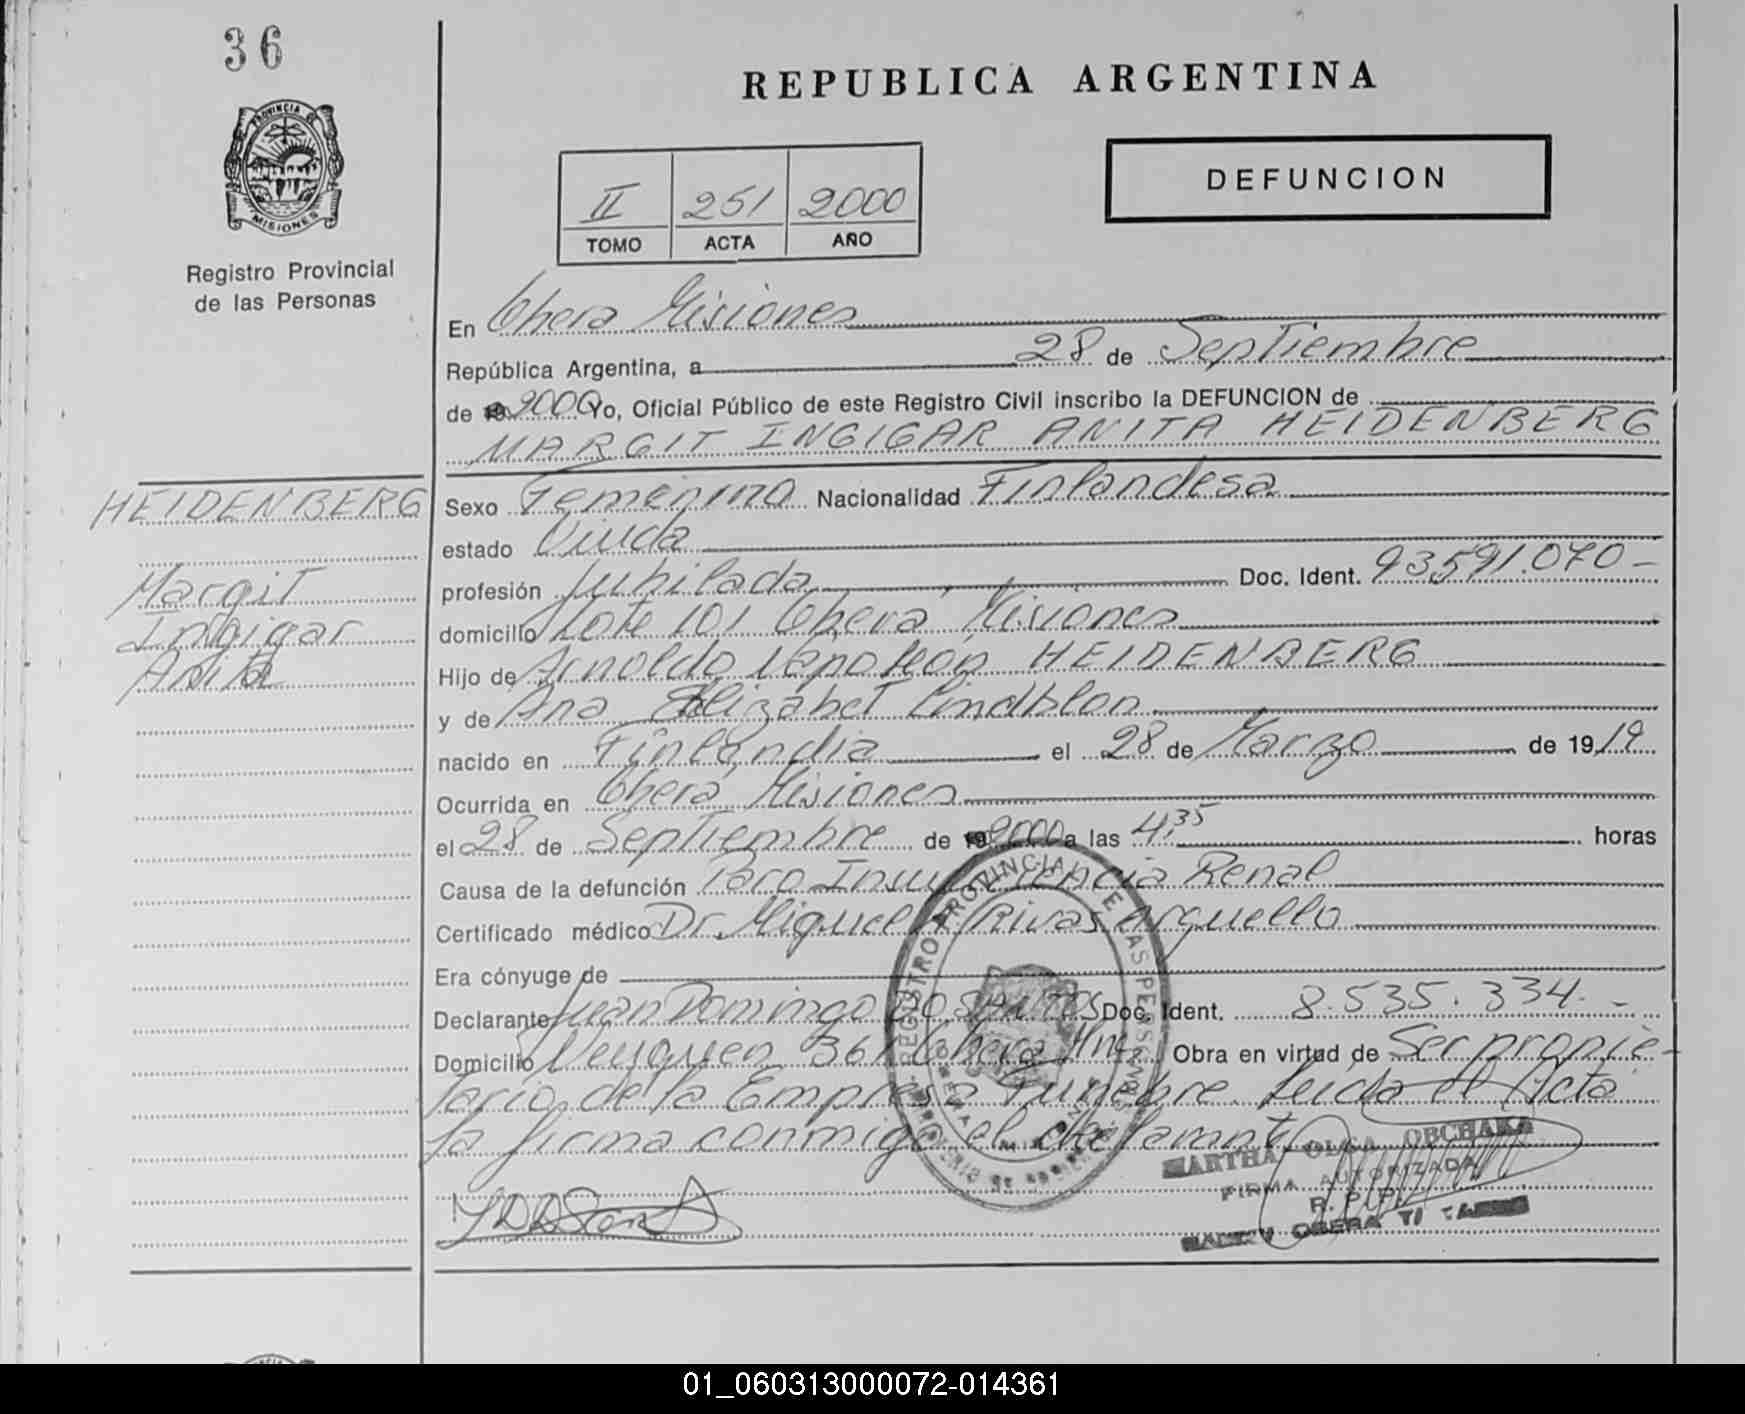 36
REPUBLICA ARGENTINA
PROVINCIA DE
MISIONES
II 251 2000
TOMO ACTA AÑO
DEFUNCION
Registro Provincial
de las Personas
En Obera Misiones
República Argentina, a 28 de Septiembre
de 2000 Yo, Oficial Público de este Registro Civil inscribo la DEFUNCION de
MARGIT INGIGAR ANITA HEIDENBERG
HEIDENBERG
Margit
Ingigar
Anita
Sexo Femenino Nacionalidad Finlandesa
estado Viuda
profesión Jubilada Doc. Ident. 93.591.070-
domicilio Lote 101 Oberá, Misiones
Hijo de Arnoldo Napoleon HEIDENBERG
y de Ana Elizabet Lindblon
nacido en Finlandia el 28 de Marzo de 1919
Ocurrida en Oberá, Misiones
el 28 de Septiembre de 2000 a las 4,35 horas
Causa de la defunción Paro Insuficiencia Renal
Certificado médico Dr. Miguel A Rivas Arguello
Era cónyuge de
Declarante Juan Domingo DO SANTOS Doc. Ident. 8.535.334.-
Domicilio Neuquen 361 Obera Mnes Obra en virtud de Ser propie-
tario de la Empresa Funebre. Leida el Acta
la firma conmigo el declarante
REGISTRO PROVINCIAL DE LAS PERSONAS
MARTHA OLGA OBCHAKA
FIRMA AUTORIZADA
R. P. P.
OBERA
01_060313000072-014361